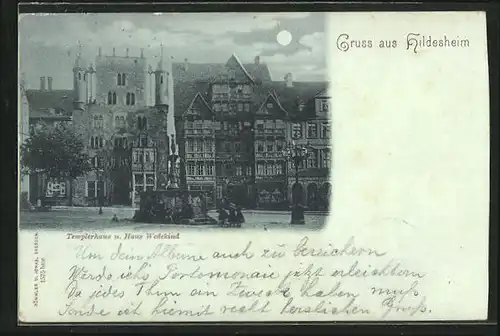 Gruss aus Hildesheim
Templerhaus u. Haus Wedekind
Um dein Albume auch zu bereichern
Werde ich's Portemonaie jetzt erleichtern
Da jedes Thun ein Zweck haben muß
Sende ich hiemit recht herzlichen Gruß.